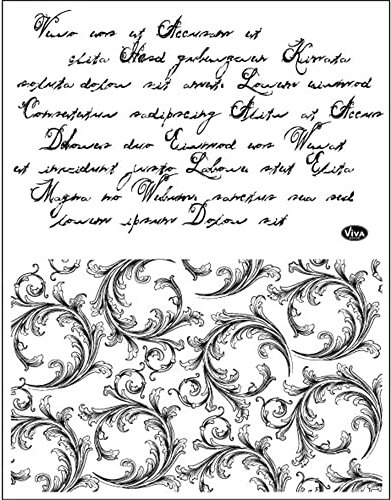 Vero eos et Accusam et
clita Kasd gubergren
soluta dolor sit amet. Lorem eiusmod
Consetetur sadipscing Alitu at Accus
Dolores duo Eirmod eos
et invidunt justo Labore stet Clita
Magna no sanctus sea sed
lorem ipsum Dolor sit
VIVA